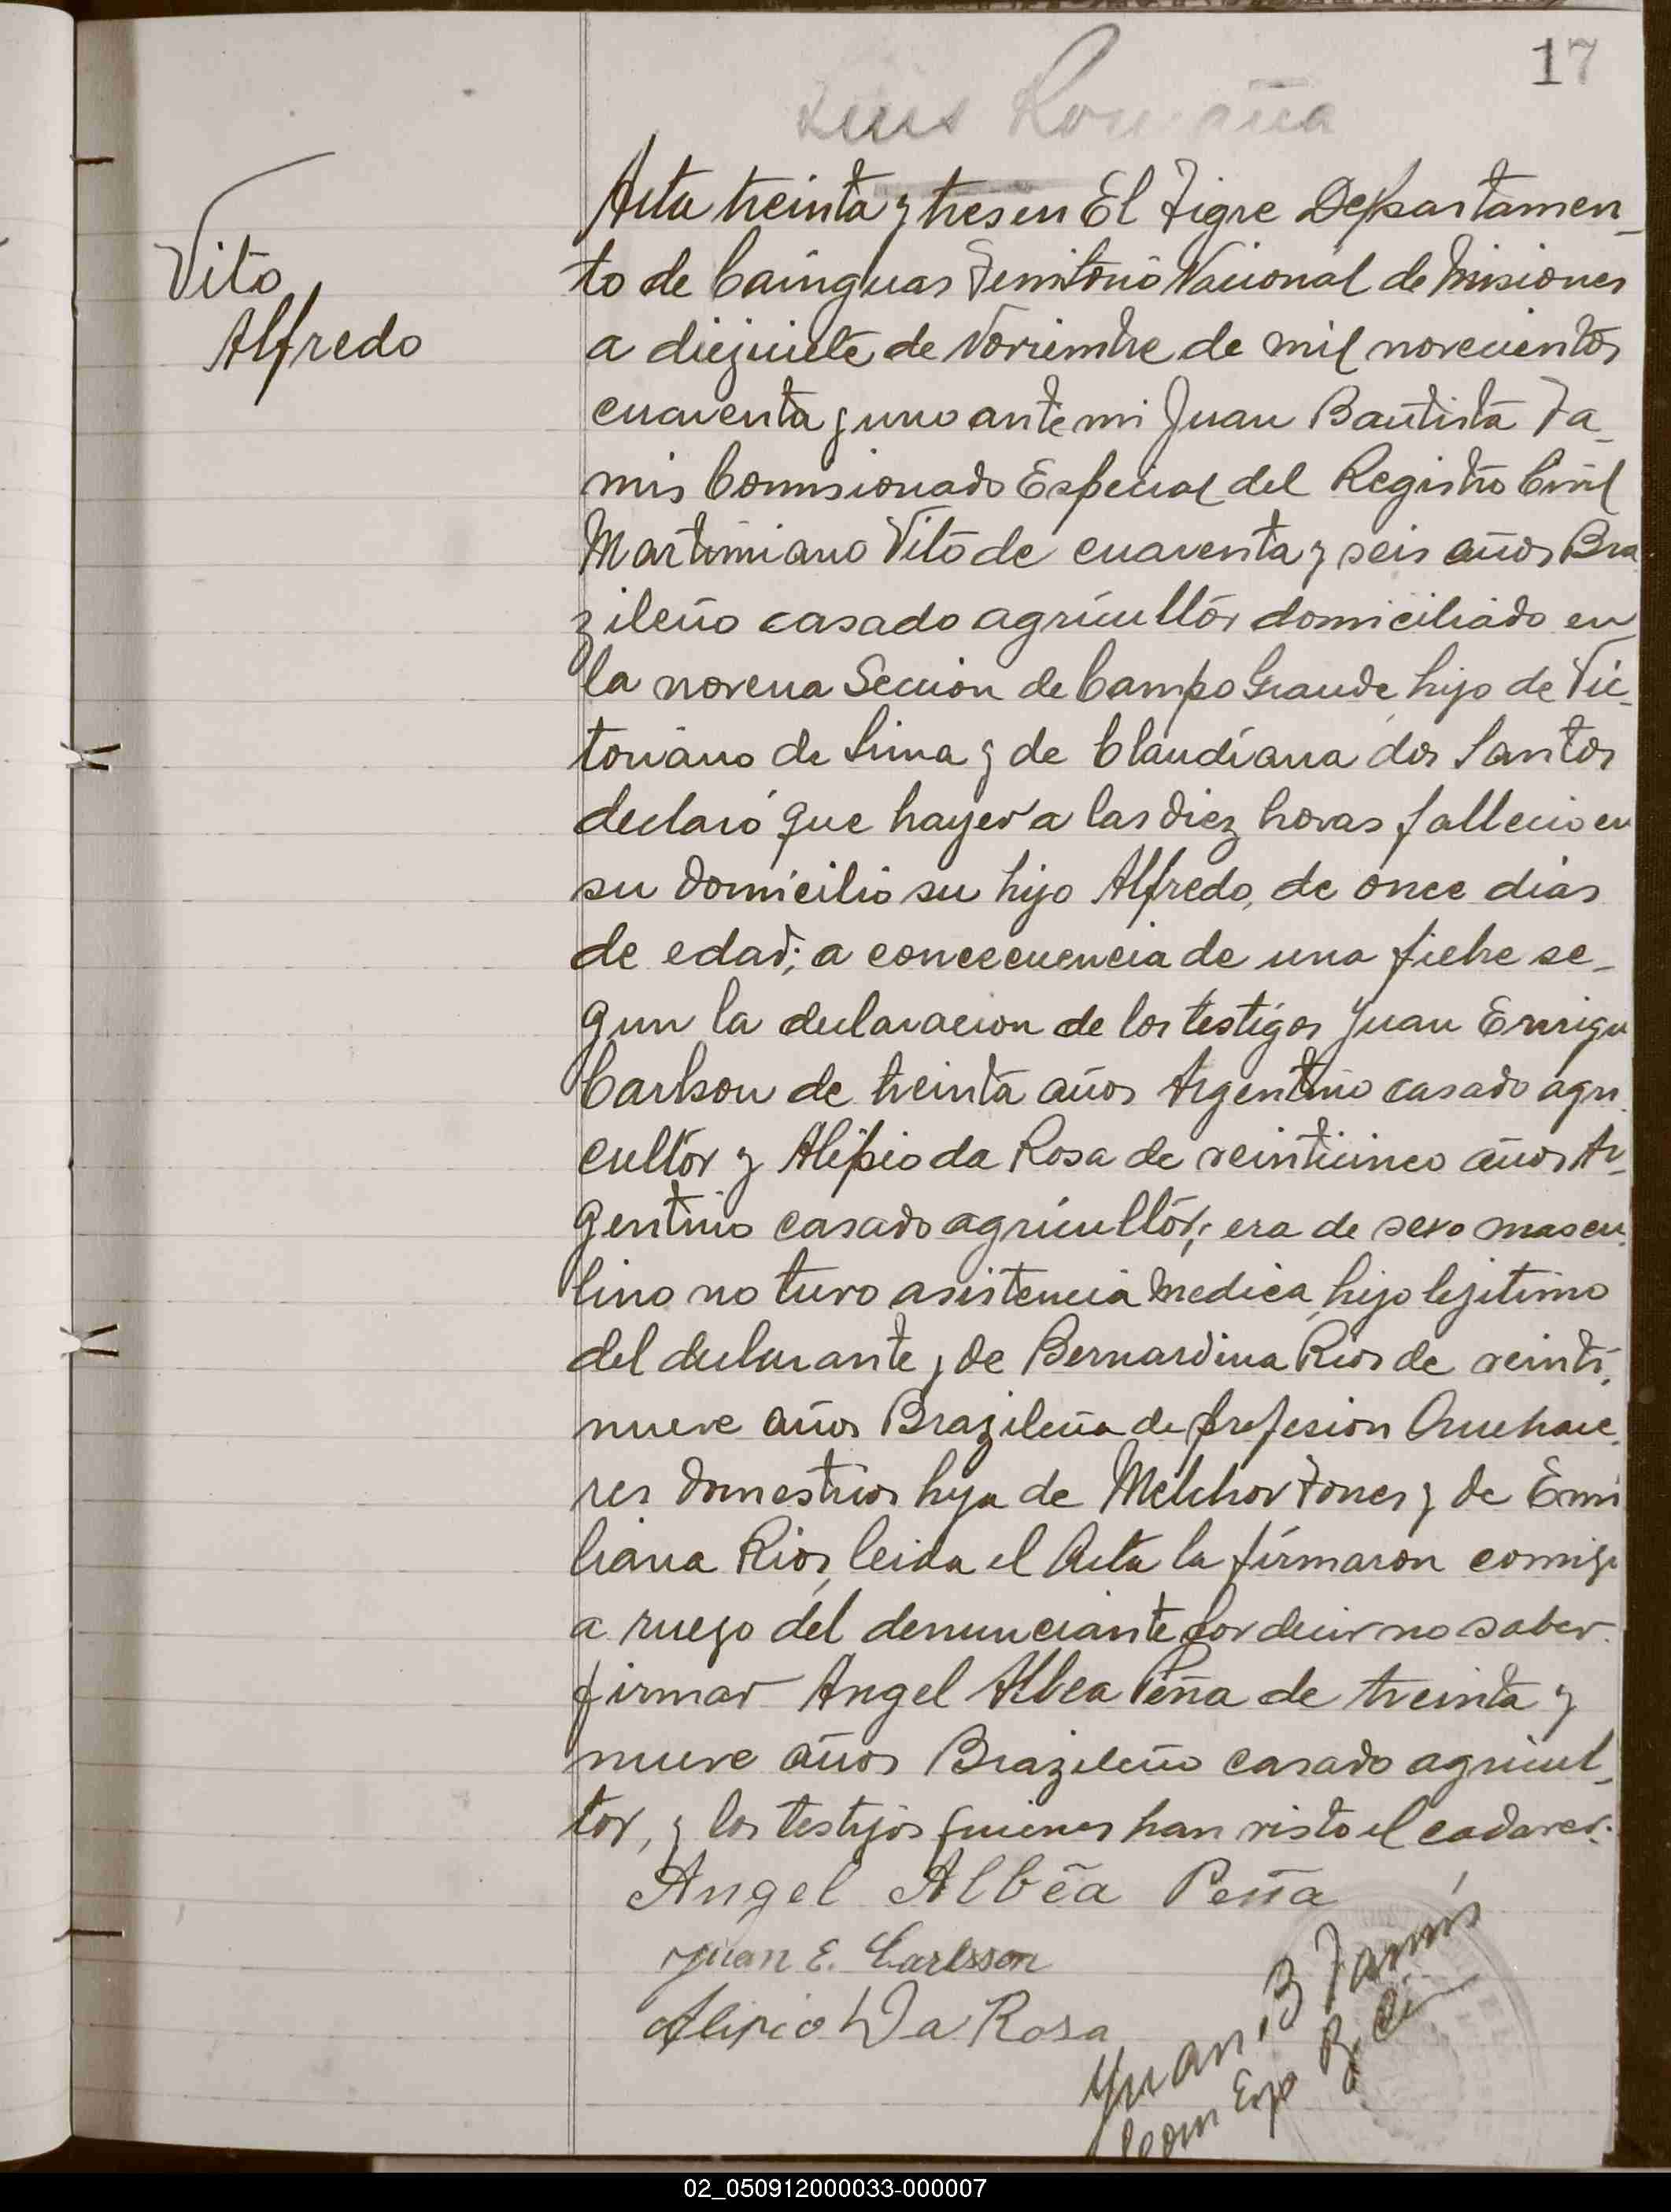 17
Luis
Vito
Alfredo
Acta treinta y tres en El Tigre Departamen_
to de Cainguas Territorio Nacional de Misiones
a diezsiete de Noviembre de mil novecientos
cuarenta y uno ante mi Juan Bautista Ta_
mis Comisionado Especial del Registro Civil
Martimiano Vito de cuarenta y seis años Bra
zileño casado agricultór domiciliado en
la novena Seccion de Campo Grande hijo de Vic_
toriano de Lima y de Claudiana dos Santos
declaró que hayer a las diez horas fallecio en
su domicilio su hijo Alfredo, de once dias
de edad; a concecuencia de una fiebre se_
gun la declaracion de los testigos Juan Enrique
Carlson de treinta años Argentino casado agri_
cultór y Alipio da Rosa de veinticinco años Ar_
gentino casado agricultór; era de sexo mascu_
lino no tuvo asistencia medica, hijo lejitimo
del declarante y de Bernardina Rios de veinti_
nueve años Brazileña de profesion Quehace_
res domesticos hija de Melchor Torres y de Emi
liana Rios, leida el Acta la firmaron comigo
a ruego del denunciante por decir no saber
firmar Angel Albea Peña de treinta y
nueve años Brazileño casado agricul_
tor, y los testijos quienes han visto el cadaver.
Angel Albéa Peña
Juan E. Carlsson
Alipio Da Rosa
Juan B Tamis
Com Esp R. Ci
02_050912000033-000007